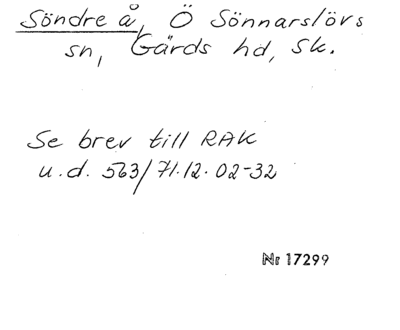 Söndre å, Ö Sönnarslövs
sn, Gärds hd, Sk.
Se brev till RAK
u.d. 563/71.12.02-32
Nr 17299